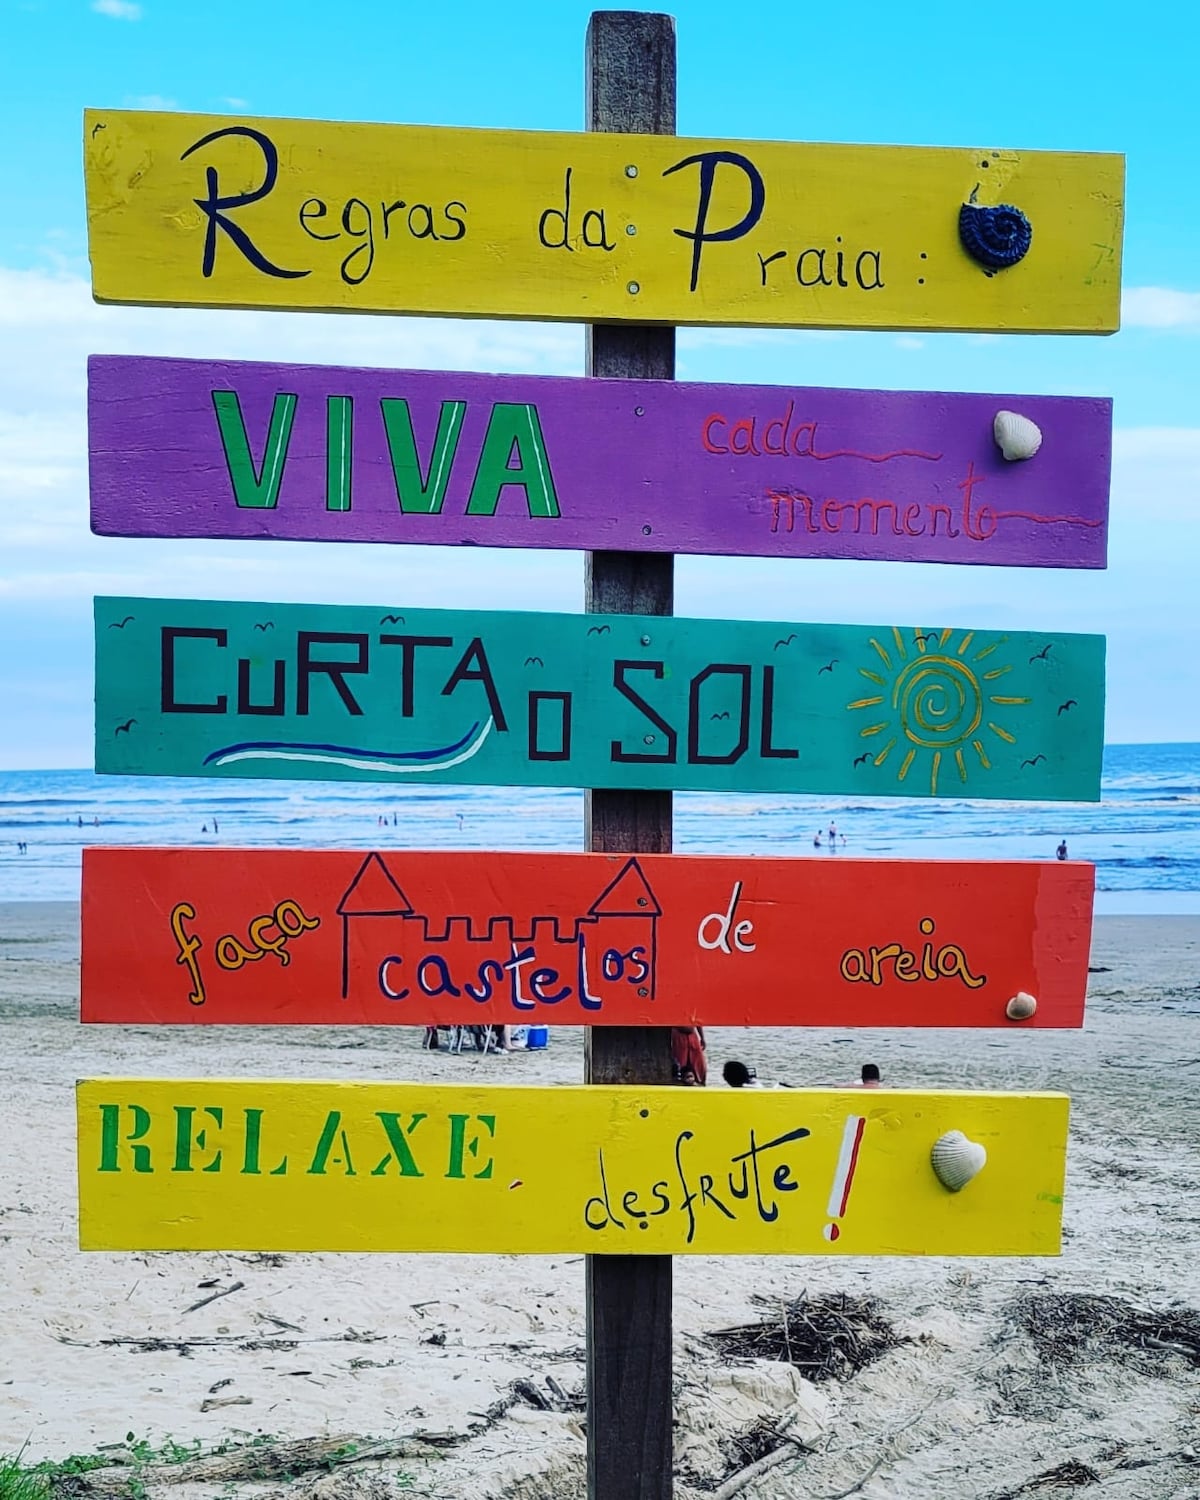 Regras da Praia :
VIVA cada
momento
CURTA O SOL
faça castelos de areia
RELAXE, desfrute!